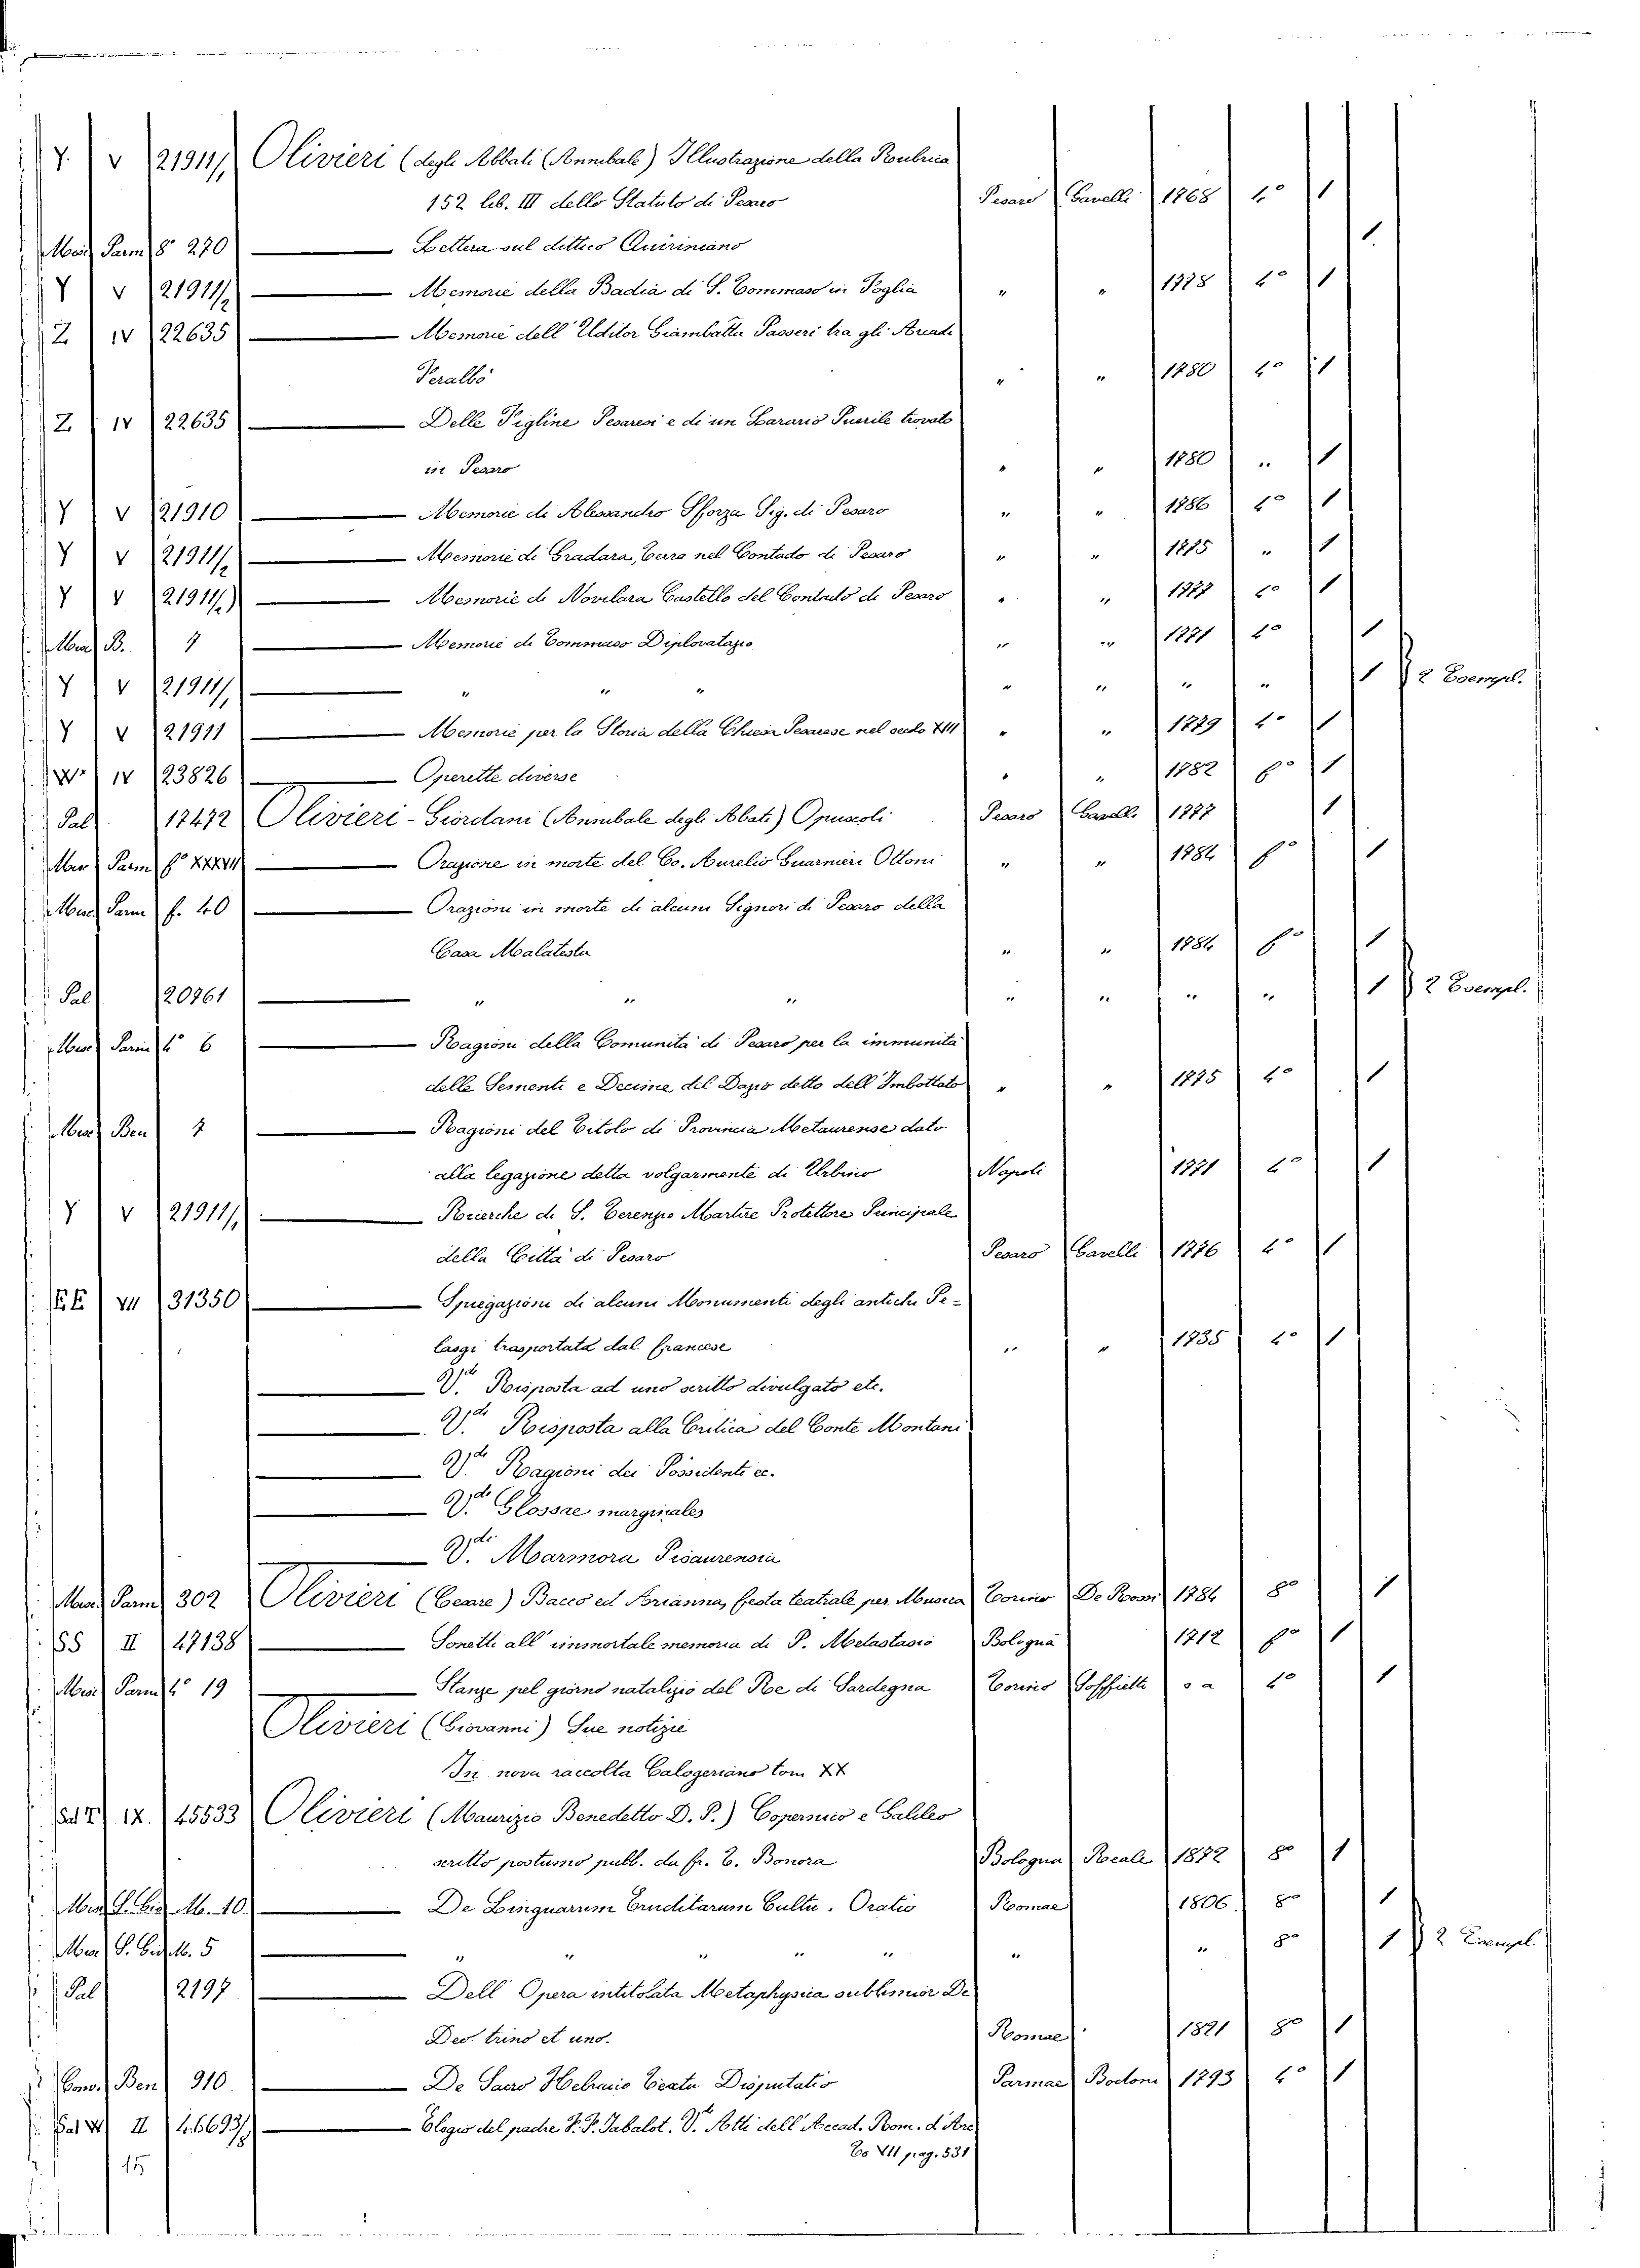 Y. V 21911/1 Olivieri (degli Abbati (Annibale) Illustrazione della Roubrica
152 lib. III dello Statuto di Pesaro Pesaro Gavelli 1768 4° 1
Parm 8° 270 — Lettera sul dittico Quiriniano 1
Y V 21911/2 — Memorie della Badia di S. Tommaso in Foglia " " 1778 4° 1
Z IV 22635 — Memorie dell' Uditor Giambatta Passeri tra gli Arcadi
Feralbo " " 1780 4° 1
Z IV 22635 — Delle Figline Pesaresi e di un Larario Puerile trovato
in Pesaro " " 1780 " 1
Y V 21910 — Memorie di Alessandro Sforza Sig. di Pesaro " " 1786 4° 1
Y V 21911/2 — Memorie di Gradara, Terra nel Contado di Pesaro " " 1775 " 1
Y V 21911/2 — Memorie di Novilara Castello del Contado di Pesaro " " 1777 4° 1
B. 7 — Memorie di Tommaso Diplovatazio " " 1771 4° 1
Y V 21911/1 — " " " " " " " 1 2 Esempl.
Y V 21911 — Memorie per la Storia della Chiesa Pesarese nel secolo XIII " " 1779 4° 1
IV 23826 — Operette diverse " " 1782 f° 1
Pal 17472 Olivieri-Giordani (Annibale degli Abati) Opuscoli Pesaro Gavelli 1777 1
Parm f° XXXVII — Orazione in morte del Co. Aurelio Guarnieri Ottoni " " 1784 f° 1
Parm f. 40 — Orazioni in morte di alcuni Signori di Pesaro della
Casa Malatesta " " 1784 f° 1
Pal 20761 — " " " " " " " 1 2 Esempl.
Parm 4° 6 — Ragioni della Comunità di Pesaro per la immunità
delle Sementi e Decime del Dazio detto dell' Imbottato " " 1775 4° 1
Ben 7 — Ragioni del Titolo di Provincia Metaurense dato
alla legazione detta volgarmente di Urbino Napoli 1771 4° 1
Y V 21911/1 — Ricerche di S. Terenzio Martire Protettore Principale
della Città di Pesaro Pesaro Gavelli 1776 4° 1
EE VII 31350 — Spiegazioni di alcuni Monumenti degli antichi Pe-
lasgi trasportata dal francese " " 1735 4° 1
— V.di Risposta ad uno scritto divulgato etc.
— V.di Risposta alla Critica del Conte Montani
— V.di Ragioni dei Possidenti ec.
— V.di Glossae marginales
— V.di Marmora Pisaurensia
Parm 302 Olivieri (Cesare) Bacco ed Arianna, festa teatrale per Musica Torino De Rossi 1784 8° 1
SS II 47138 — Sonetti all' immortale memoria di P. Metastasio Bologna 1712 f° 1
Parm 4° 19 — Stanze pel giorno natalizio del Re di Sardegna Torino Soffietti s a 4° 1
Olivieri (Giovanni) Sue notizie
In nova raccolta Calogeriano tom XX
IX. 45533 Olivieri (Maurizio Benedetto D. P.) Copernico e Galileo
scritto postumo pubb. da fr. T. Bonora Bologna Reale 1872 8° 1
M. 10. — De Linguarum Eruditarum Cultu. Oratio Romae 1806. 8° 1
M. 5 — " " " " " " " 8° 1 2 Esempl.
Pal 2197 — Dell' Opera intitolata Metaphysica sublimior De
Deo trino et uno. Romae 1821 8° 1
Ben 910 — De Sacro Hebraico Textu Disputatio Parmae Bodoni 1793 4° 1
Sal W II 46693/8 — Elogio del padre F. F. Jabalot. V. Atti dell' Accad. Rom. d'Arc
To VII pag. 531
15